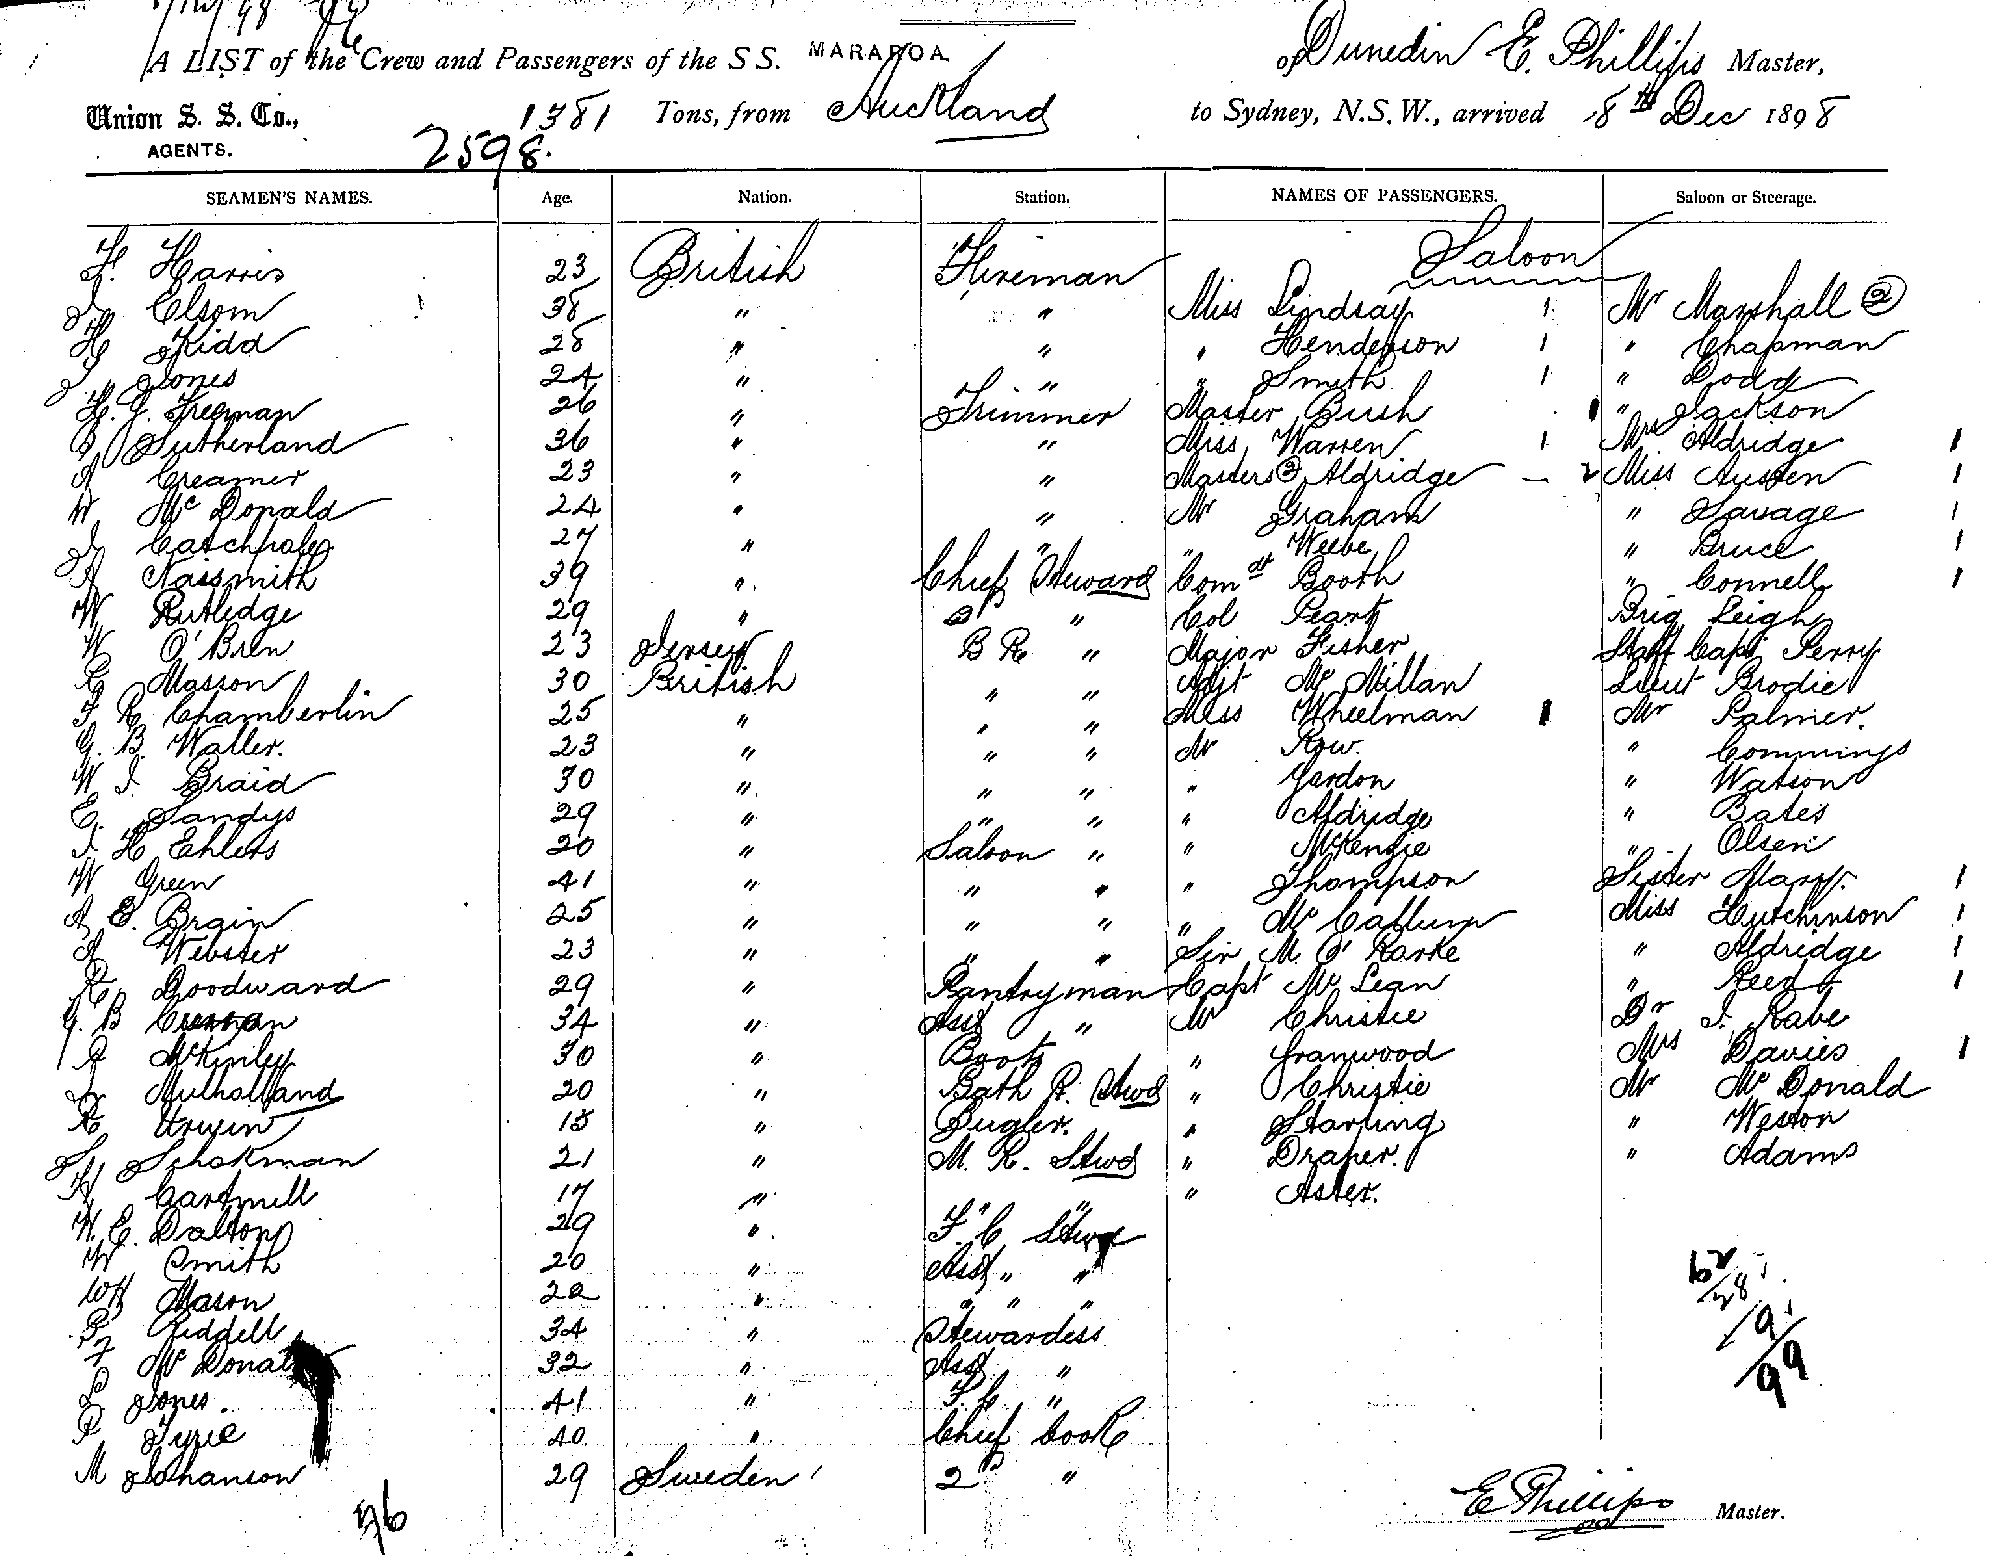 A LIST of the Crew and Passengers of the S S. MARAROA of Dunedin E. Phillips Master,
Union S. S. Co., 1381 Tons, from Auckland to Sydney, N.S.W., arrived 8th Dec 1898
AGENTS. 2598.
SEAMEN'S NAMES. Age. Nation. Station. NAMES OF PASSENGERS. Saloon or Steerage.
Saloon
Harris 23 British Fireman
Elsom 38 " " Miss Lindsay 1 Mr Marshall ②
Kidd 28 " " " Henderson 1 " Chapman
Jones 24 " " " Smith 1 " Dodd
Freeman 26 " Trimmer Master Bush " Jackson
Sutherland 36 " " Miss Warren 1 Mrs Aldridge 1
A Creamer 23 " " Masters ② Aldridge — 2 Miss Austen 1
W McDonald 24 " " Mr Graham " Savage 1
Catchpole 27 " " " Weebe " Bruce 1
A Naismith 39 " Chief Steward Comdt Booth " Connell 1
W Rutledge 29 " 2d " Col Peart Brig Leigh
W O'Brien 23 Jersey B R " Major Fisher Staff Capt Perry
Masson 30 British " " Adjt McMillan Lieut Brodie
F R Chamberlin 25 " " " Miss Wheelman 1 Mr Palmer.
G. B. Waller. 23 " " " Mr Row. " Commings
W J. Braid 30 " " " " Yardon " Watson
E. Sandys 29 " " " " Aldridge " Bates
J. H Ehlers 20 " Saloon " " McKenzie " Olsen
W Green 41 " " " " Thompson Sister Mary. 1
A E. Brain 25 " " " " McCallum Miss Hutchinson 1
A Webster 23 " " " Sir M. O'Rorke " Aldridge 1
R. Goodward 29 " Pantryman Capt McLean " Reed 1
G. B 34 " Asst " Mr Christie Dr J. Rabe
McKinley 30 " Boots " Granwood Mrs Davies 1
Mulholland 20 " Bath R. Stwd " Christie Mr McDonald
R Urwin 18 " Bugler. " Starling " Weston
Schokman 21 " M. R. Stwd " Draper. " Adams
H Cartmill 17 " " " " Aster.
H. E. Dalton 29 " F. C Stwd
W Smith 20 " Asst " "
WH Mason 22 " " " "
Liddell 34 " Stewardess
McDonald 32 " Asst "
L Jones. 41 " F. C "
P Tyrie 40 " Chief Cook
M Johanson 29 Sweden 2d "
36
E Phillips Master.